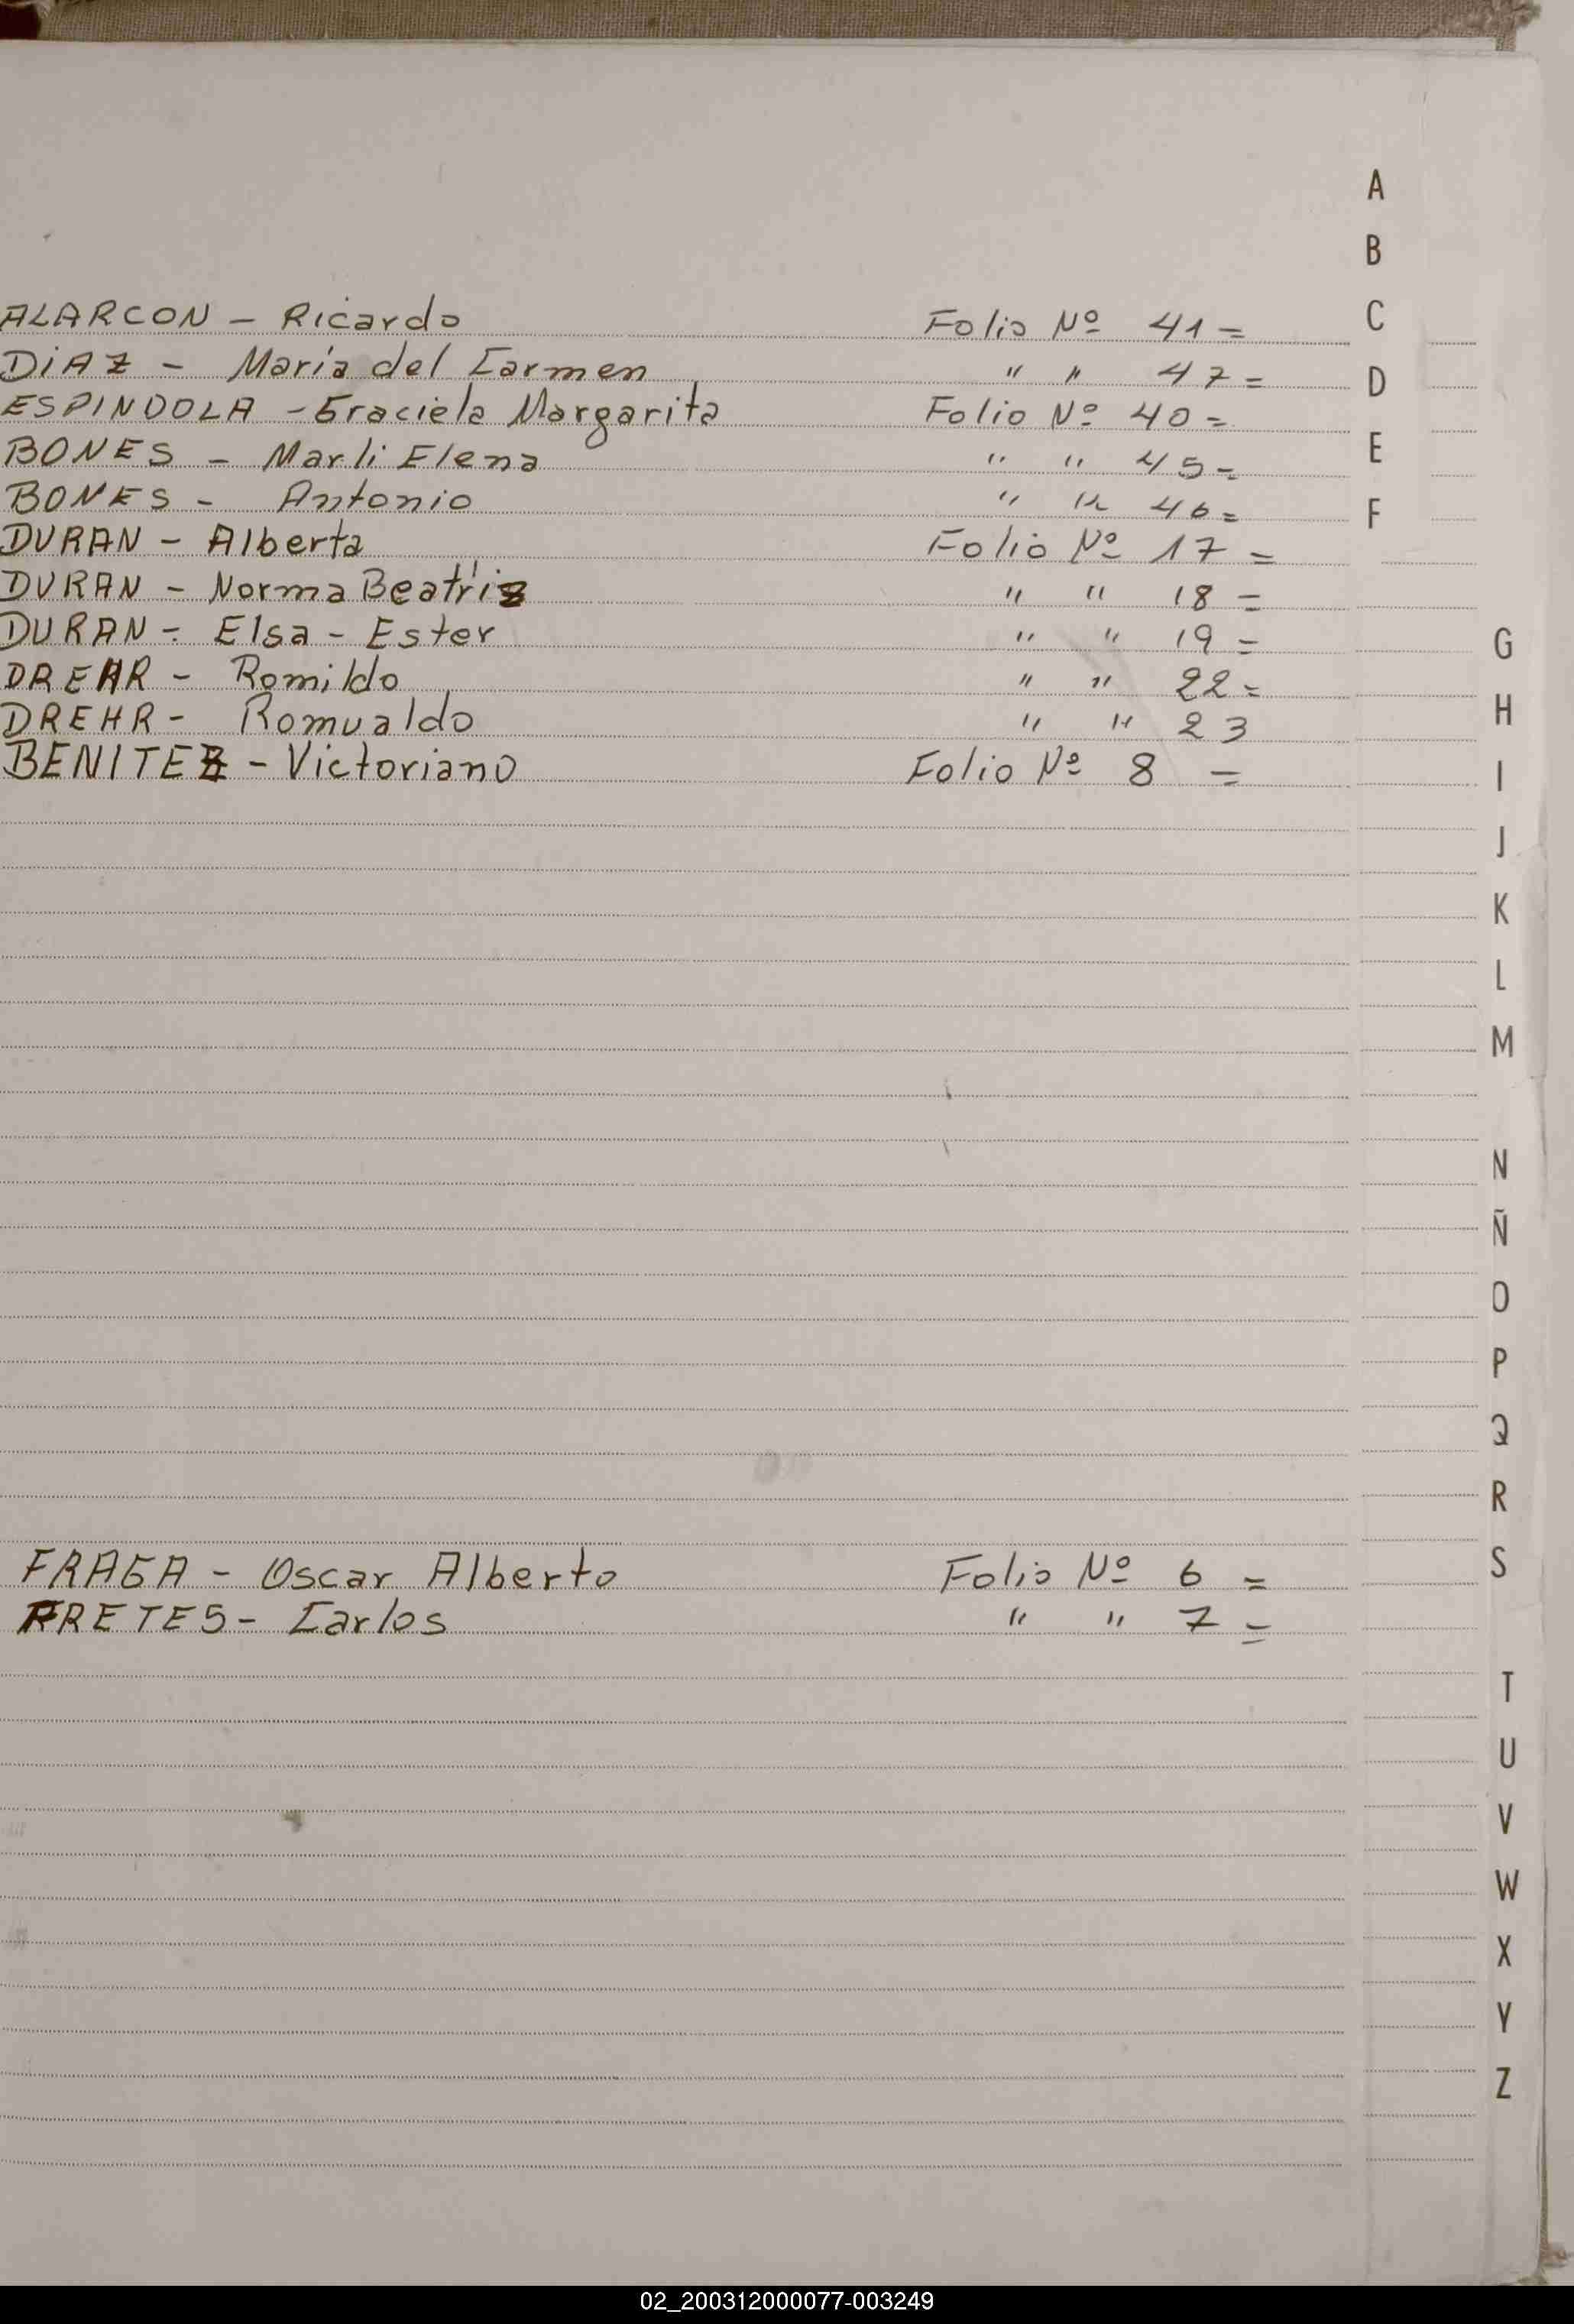 A
B
ALARCON - Ricardo Folio Nº 41 = C
DiAZ - María del Carmen " " 47 = D
ESPINDOLA - Graciela Margarita Folio Nº 40 =
BONES - Marli Elena " " 45 = E
BONES - Antonio " " 46 = F
DURAN - Alberta Folio Nº 17 =
DURAN - Norma Beatriz " " 18 =
DURAN - Elsa - Ester " " 19 = G
DREHR - Romildo " " 22 =
DREHR - Romualdo " " 23 H
BENITEZ - Victoriano Folio Nº 8 = I
J
K
L
M
N
Ñ
O
P
Q
R
FRAGA - Oscar Alberto Folio Nº 6 = S
FRETES - Carlos " " 7 =
T
U
V
W
X
Y
Z
02_200312000077-003249